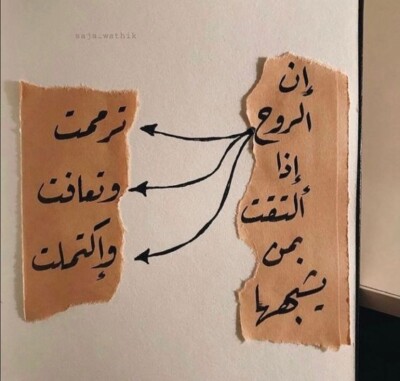 saja.wathik
إن
الروح
إذا
ألتقت
بمن
يشبهها
ترممت
وتعافت
وإكتملت